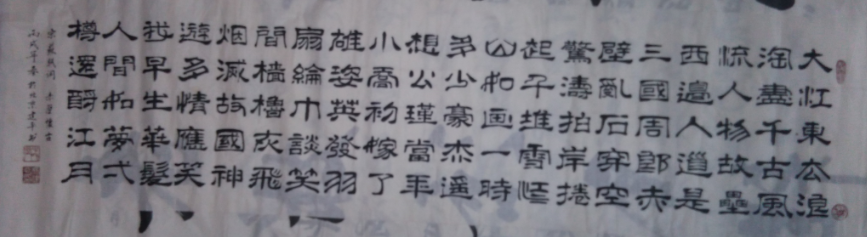 大江東去浪
淘盡千古風
流人物故壘
西邊人道是
三國周郎赤
壁亂石穿空
驚濤拍岸捲
起千堆雪江
山如画一時
多少豪杰遥
想公瑾當年
小喬初嫁了
雄姿英發羽
扇綸巾談笑
間檣櫓灰飛
烟滅故國神
遊多情應笑
我早生華髮
人間如夢弌
樽還酹江月
宋蘇軾词 赤壁懷古
丙戌年春於北京